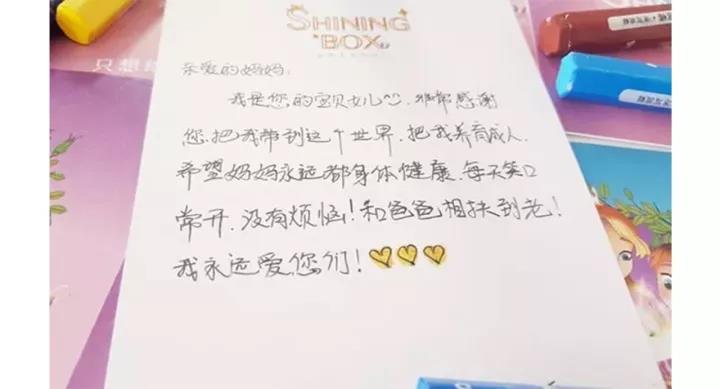 SHINING
BOX
只想
亲爱的妈妈:
我是您的宝贝女儿^^. 非常感谢
您把我带到这个世界.把我养育成人.
希望妈妈永远都身体健康.每天笑口
常开.没有烦恼!和爸爸相扶到老!
我永远爱您们!💛💛💛